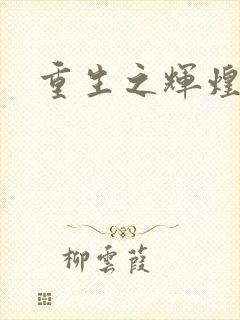 重生之輝煌
柳雲葭